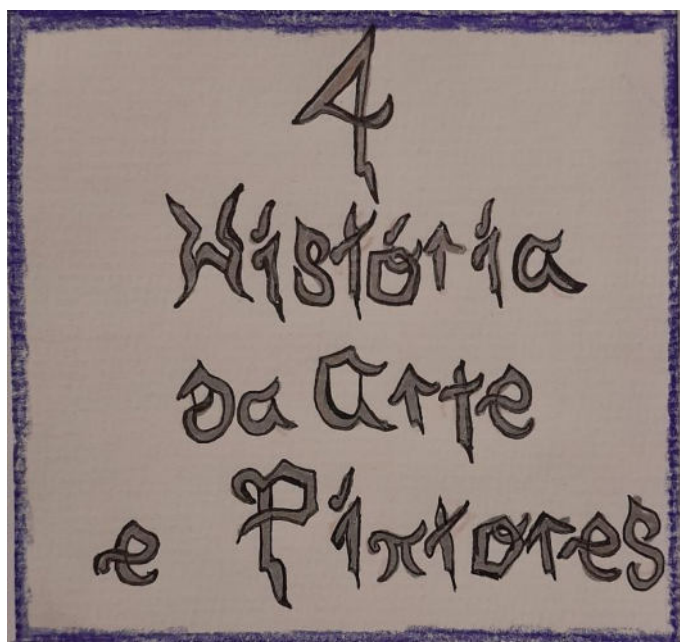 4
História
da Arte
e Pintores